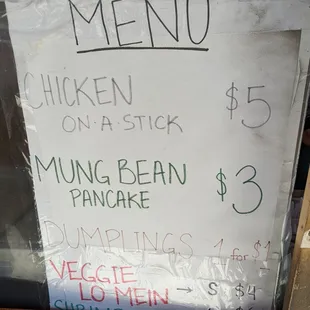 MENU
CHICKEN $5
ON·A·STICK
MUNG BEAN $3
PANCAKE
DUMPLINGS 1 for $1
VEGGIE
LO MEIN → S $4